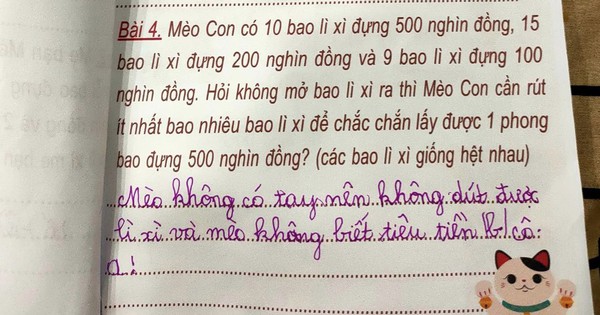 Bài 4. Mèo Con có 10 bao lì xì đựng 500 nghìn đồng, 15
bao lì xì đựng 200 nghìn đồng và 9 bao lì xì đựng 100
nghìn đồng. Hỏi không mở bao lì xì ra thì Mèo Con cần rút
ít nhất bao nhiêu bao lì xì để chắc chắn lấy được 1 phong
bao đựng 500 nghìn đồng? (các bao lì xì giống hệt nhau)
Mèo không có tay nên không dút được
lì xì và mèo không biết tiêu tiền
ạ!